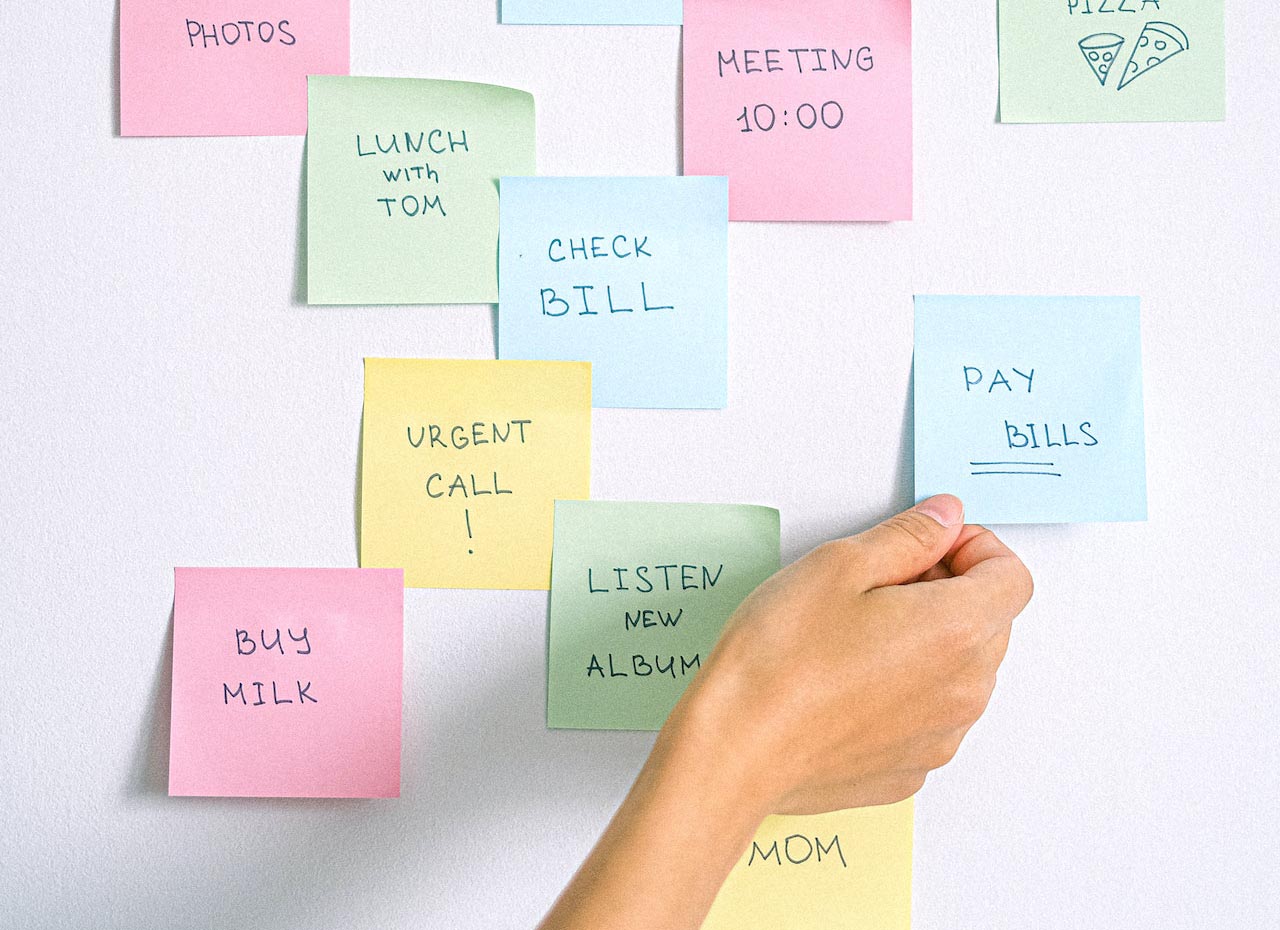 PHOTOS
MEETING
10:00
PIZZA
LUNCH
with
TOM
CHECK
BILL
PAY
BILLS
URGENT
CALL
!
LISTEN
NEW
ALBUM
BUY
MILK
MOM